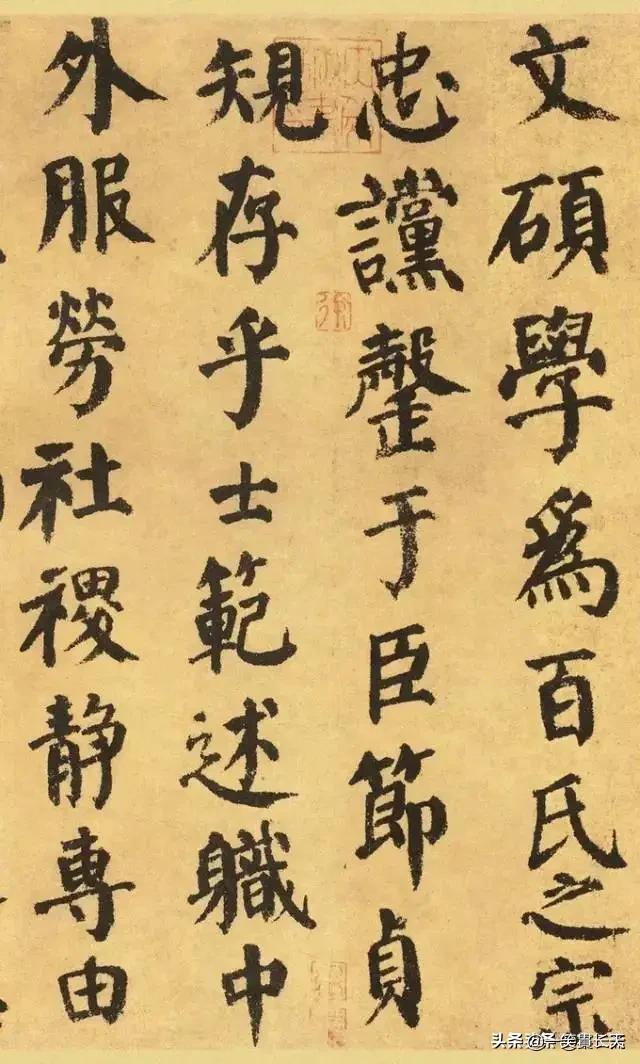 文碩學爲百氏之宗
忠讜罄于臣節貞
規存乎士範述職中
外服勞社稷静專由
头条